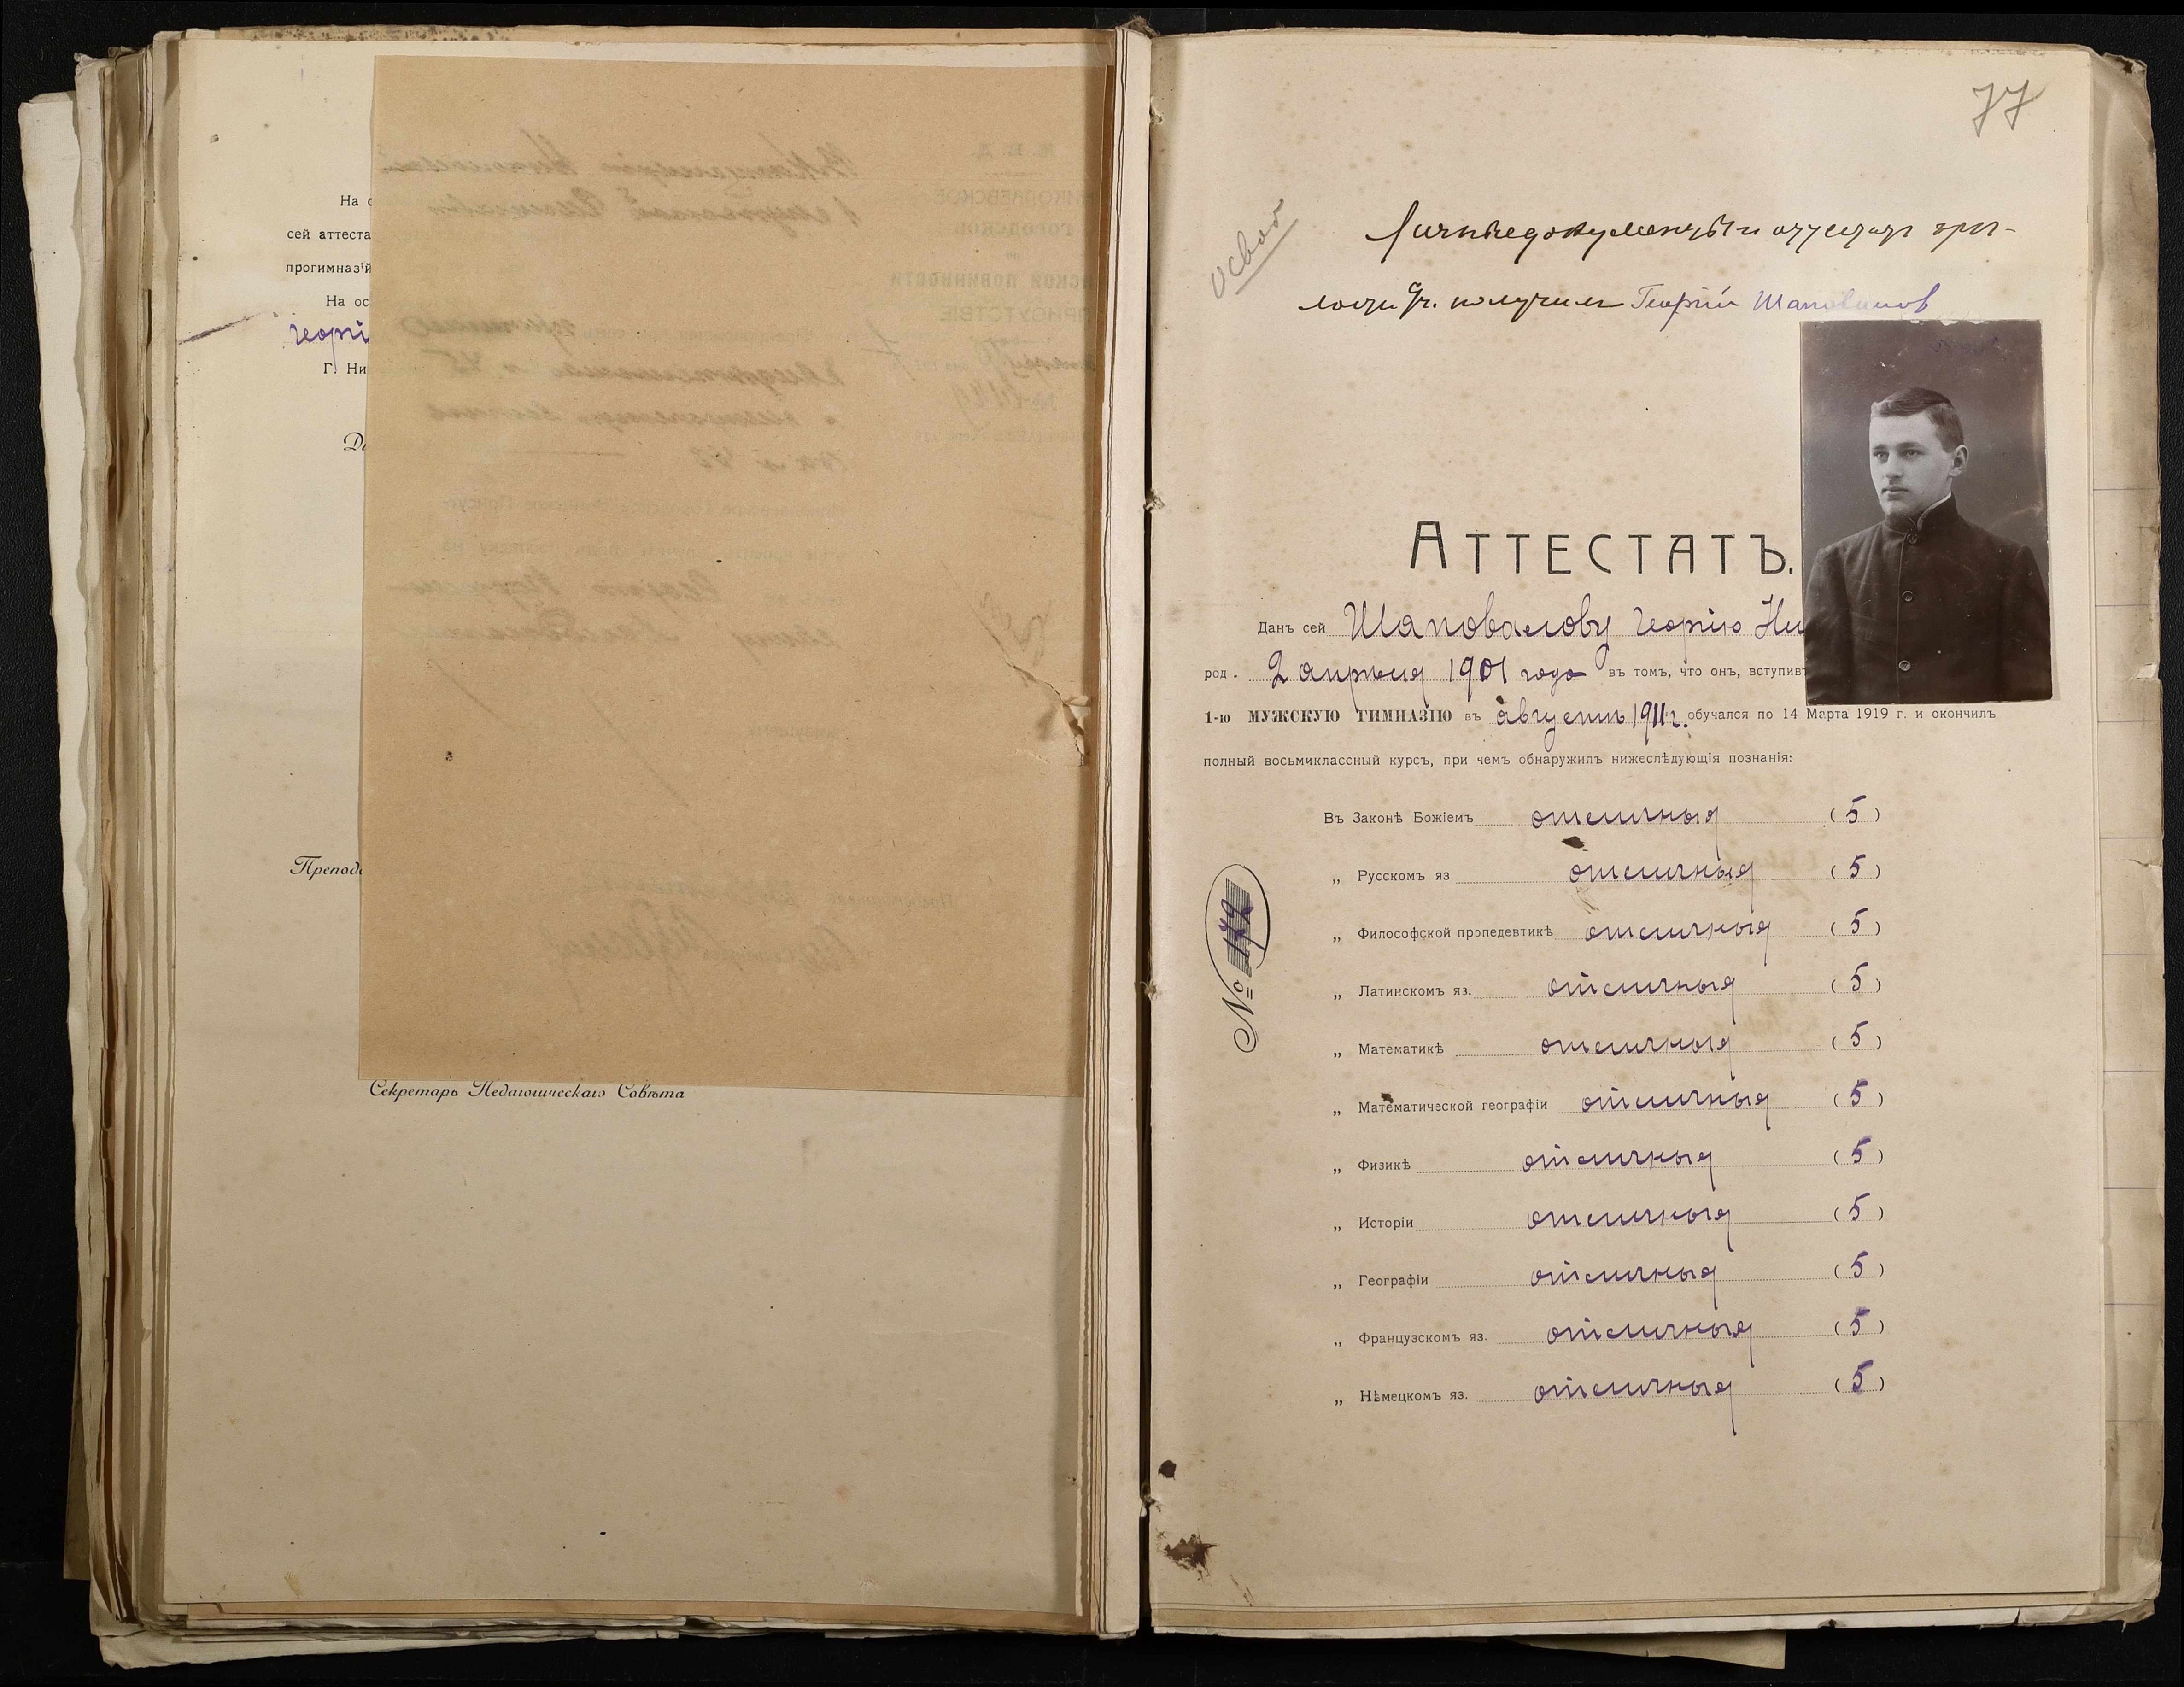 На о
сей аттеста
прогимназій
На ос
Георгі
Г. Ни
Преподо
Секретарь Педагогическаго Совѣта
77
освоб
Личные документы и аттестат зре-
лости уч. получил Георгій Шаповалов
АТТЕСТАТЪ.
Данъ сей Шаповалову Георгію Ни
род. 2 апрѣля 1901 года въ томъ, что онъ, вступив
1-ю МУЖСКУЮ ГИМНАЗІЮ въ августѣ 1911 г. обучался по 14 Марта 1919 г. и окончилъ
полный восьмиклассный курсъ, при чемъ обнаружилъ нижеслѣдующія познанія:
Въ Законѣ Божіемъ отличныя (5)
„ Русскомъ яз. отличныя (5)
„ Философской пропедевтикѣ отличныя (5)
„ Латинскомъ яз. отличныя (5)
„ Математикѣ отличныя (5)
„ Математической географіи отличныя (5)
„ Физикѣ отличныя (5)
„ Исторіи отличныя (5)
„ Географіи отличныя (5)
„ Французскомъ яз. отличныя (5)
„ Нѣмецкомъ яз. отличныя (5)
№ 172